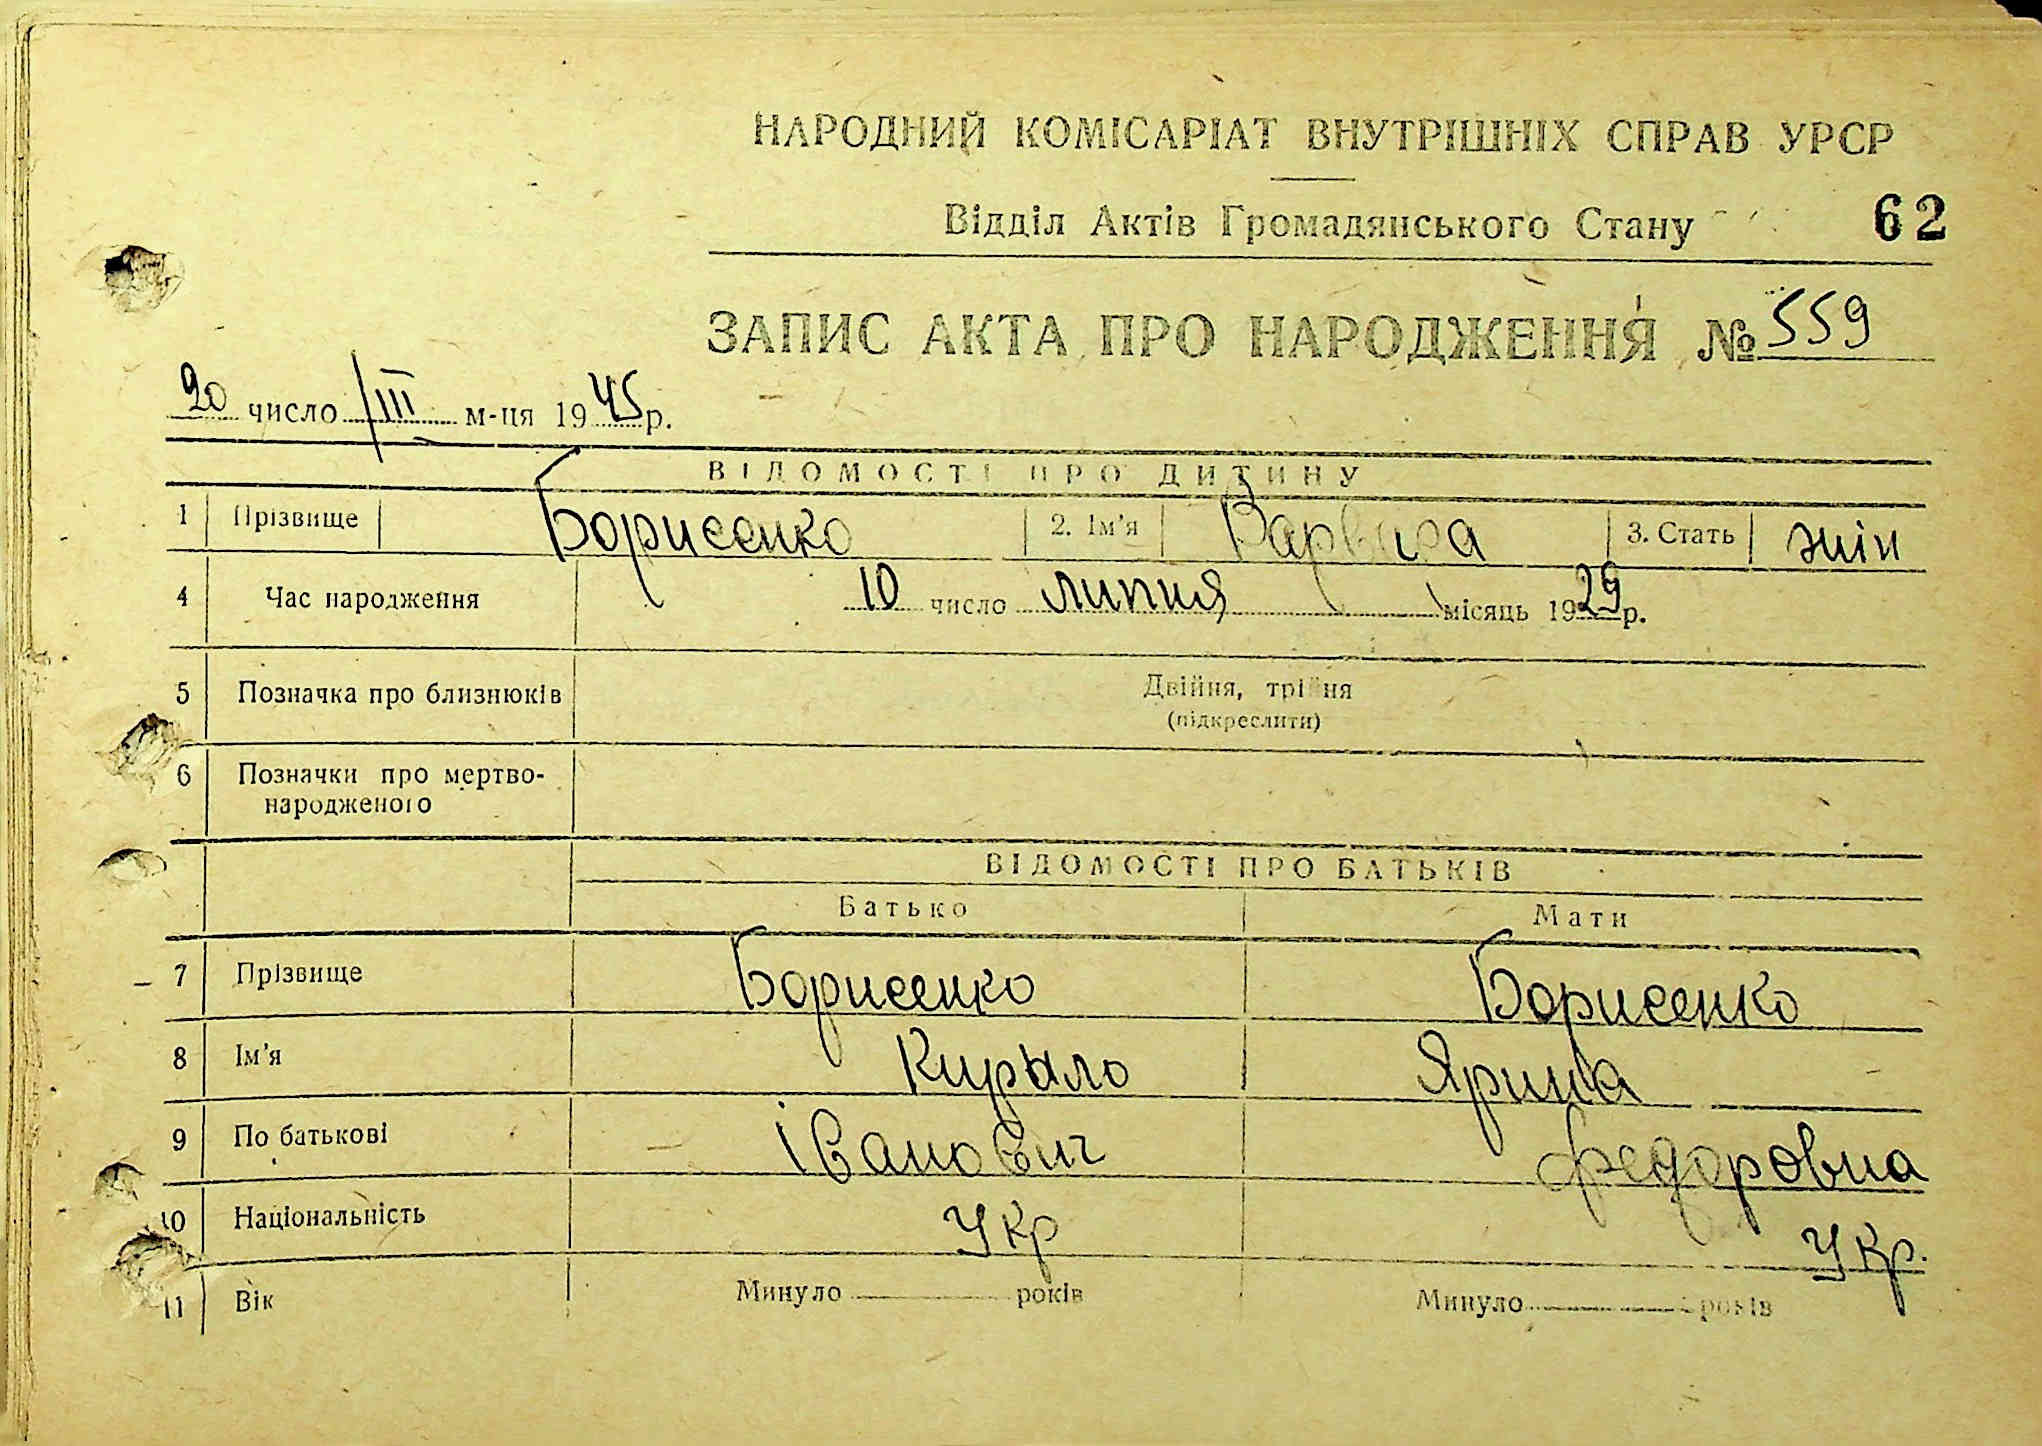 НАРОДНИЙ КОМІСАРІАТ ВНУТРІШНІХ СПРАВ УРСР
Відділ Актів Громадянського Стану 62
ЗАПИС АКТА ПРО НАРОДЖЕННЯ № 559
20 число III м-ця 1945 р.
ВІДОМОСТІ ПРО ДИТИНУ
1 Прізвище Борисенко 2. Ім'я Варвара 3. Стать жін
4 Час народження 10 число липня місяць 1929 р.
5 Позначка про близнюків Двійня, трійня
(підкреслити)
6 Позначки про мертво-
народженого
ВІДОМОСТІ ПРО БАТЬКІВ
Батько Мати
7 Прізвище Борисенко Борисенко
8 Ім'я Кирыло Ярина
9 По батькові Іванович Федоровна
10 Національність Укр Укр.
11 Вік Минуло років Минуло років